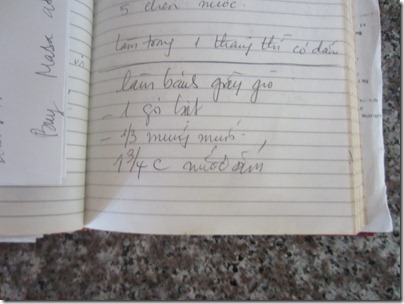 5 chén nước.
làm trong 1 tháng thì có dấm
làm bánh giầy giò
- 1 gói bột
- 1/3 muỗng muối.
1 3/4 C nước ấm
Buy Masa